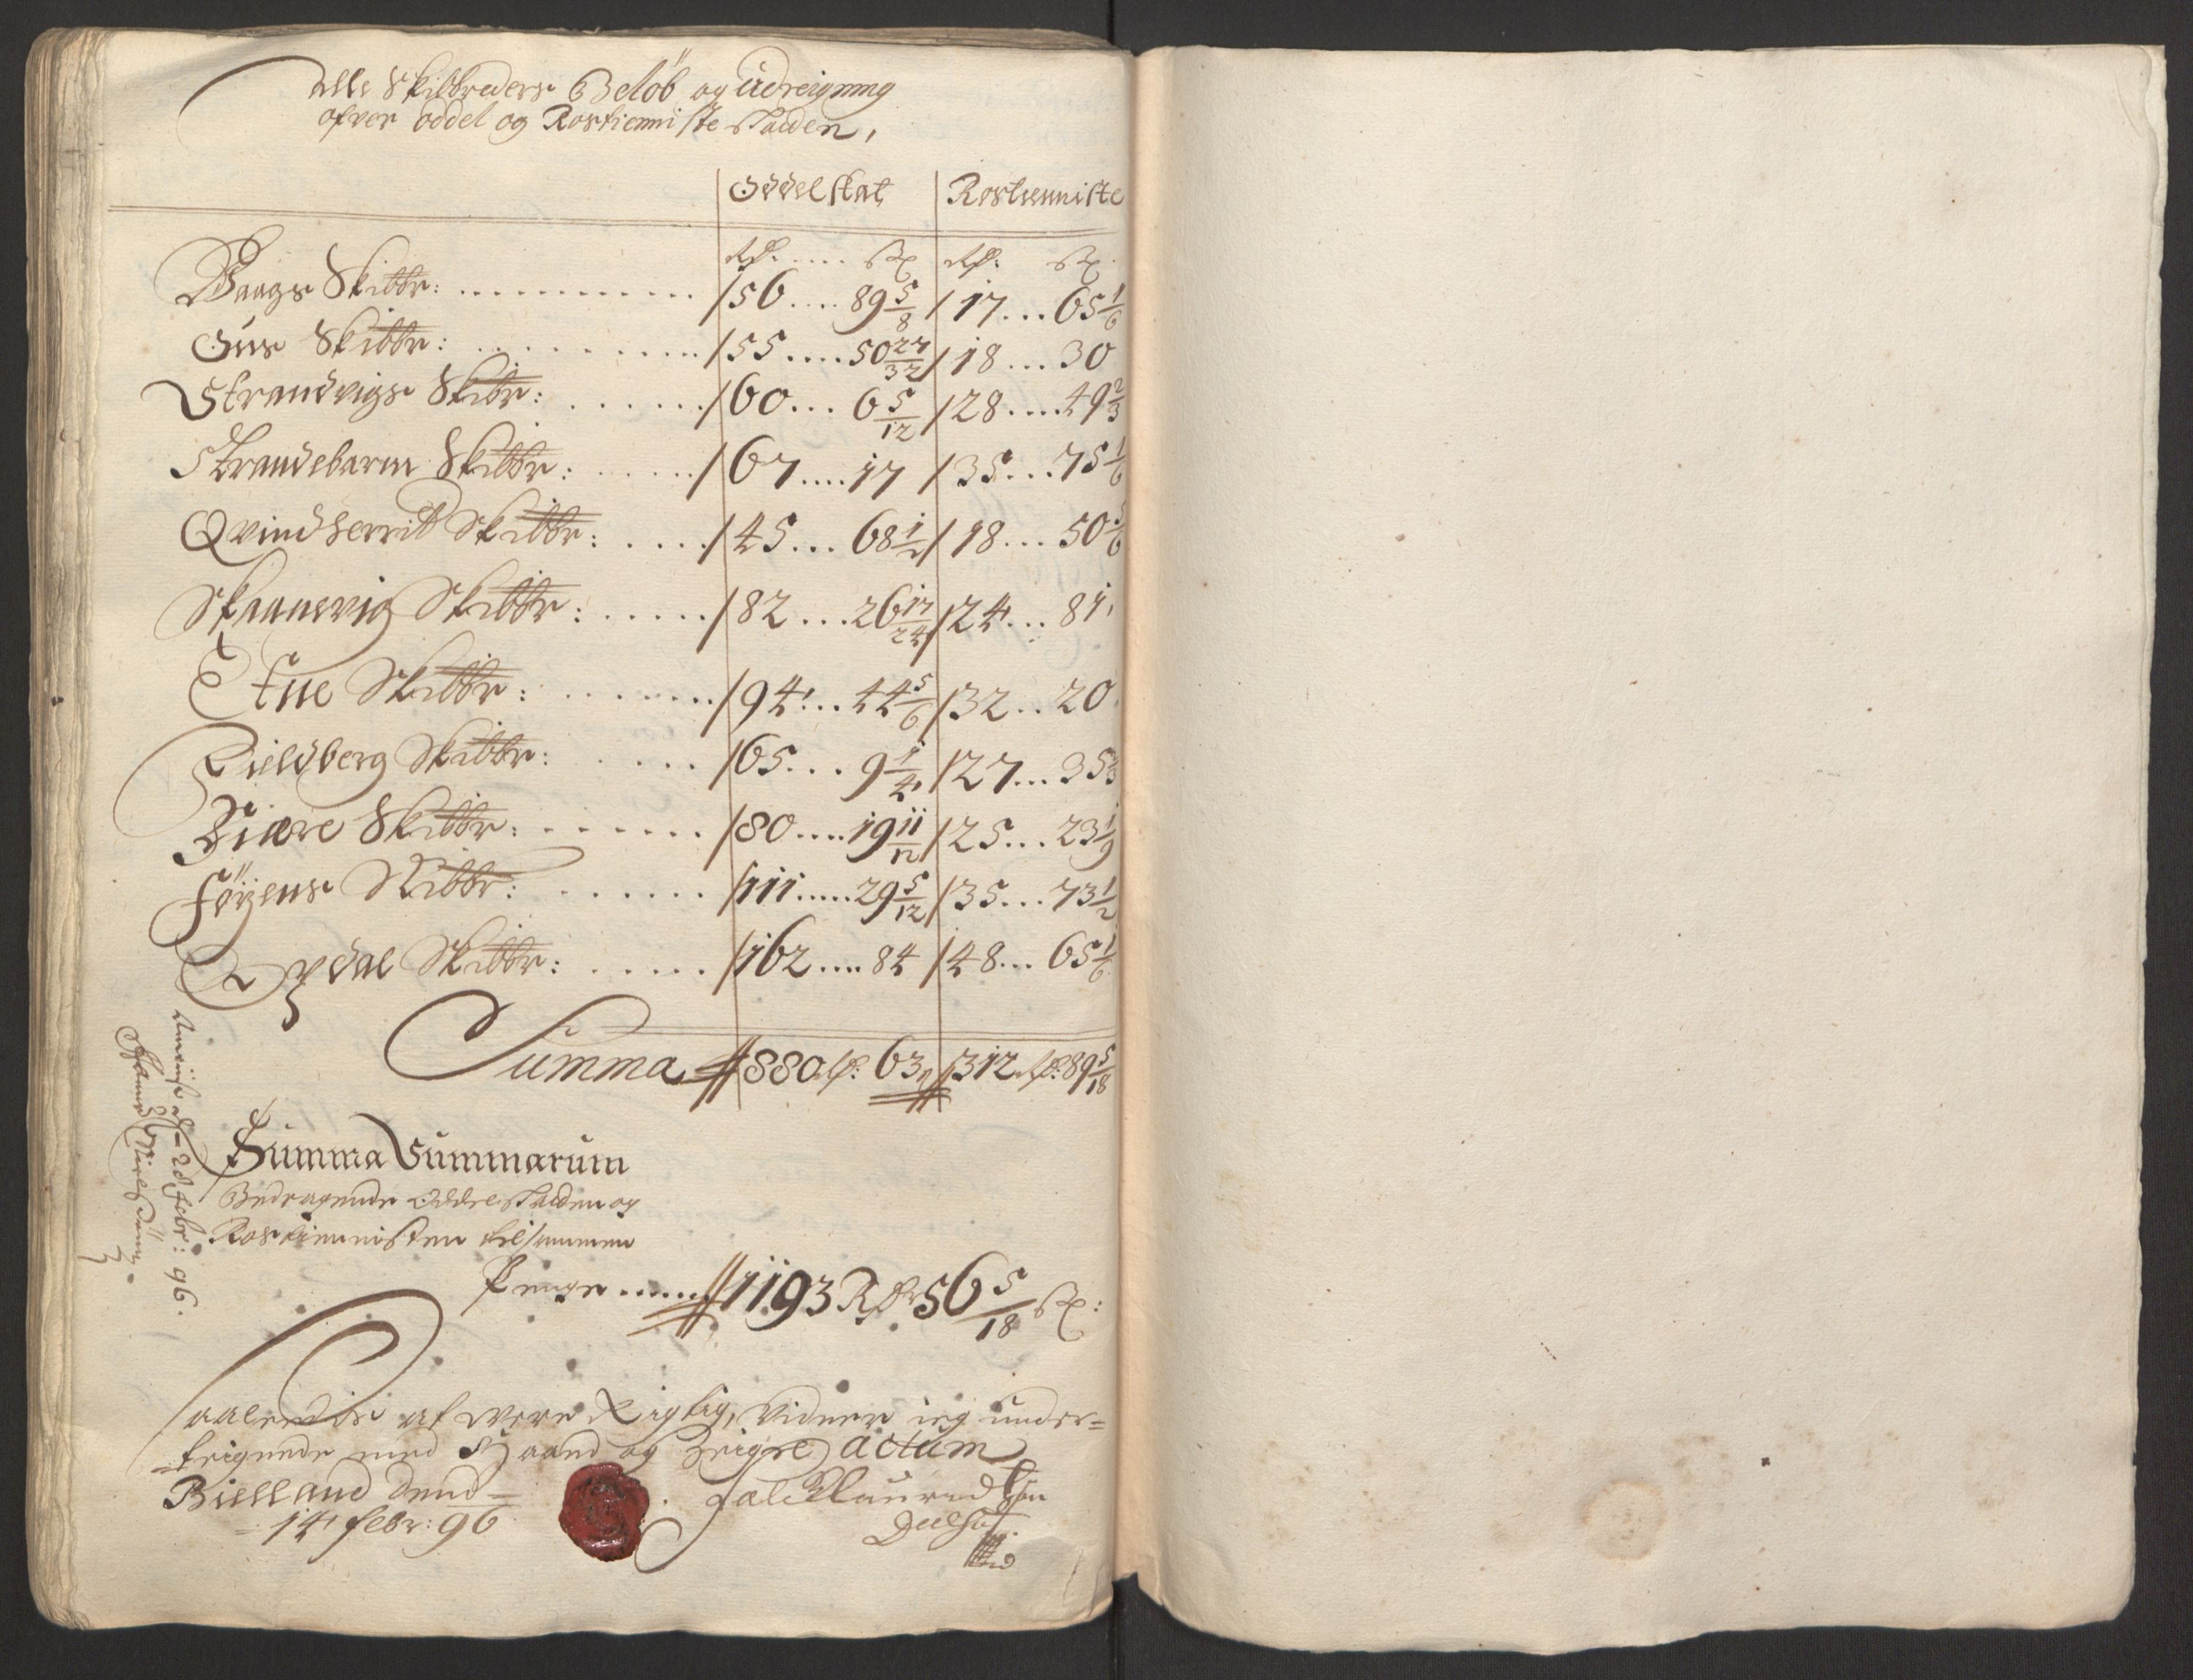 Alle Skibbreders Beløb og Udreigning
ofver oddel og Rostienniste Skatden,
Oddelskat Rostienniste
Rdr. .... ß Rdr: ß
Waags Skibbr: ........... 56 .... 89 5/8 17 ... 65 1/6
Ous Skibbr: .......... 55 .... 50 27/32 18 ... 30
Strandvigs Skibr: ....... 60 ... 6 5/12 28 .... 49 2/3
Strandebarm Skibbr: ...... 67 .... 17 35 ... 75 1/6
Qvindherrits Skibbr: .... 45 ... 68 1/2 18 ... 50 5/6
Skaanevig Skibbr: ..... 82 ... 26 17/24 24 ... 81
Etne Skibbr: ........ 94 ... 44 5/6 32 .. 20
Fieldberg Skibbr: ..... 65 ... 9 1/4 27 ... 35
Fiære Skibbr: ....... 80 .... 19 11/12 25 ... 23 1/9
Føyens Skibbr: ....... 111 ..... 29 5/12 35 ... 73 1/2
Opdal Skibbr: ..... 162 .... 84 48 ... 65 1/6
Summa 880 Rdr: 63 312 Rdr: 89 5/18
Summa Summarum
Bedragende Oddelskatden og
Rostiennisten tilsammen
Penge ...... 1193 Rdr 56 5/18 ß:
Saaledis at were Rigtig, Vidner ieg under=
=teignede med Haand og Zeigne Actum
Bielland dend=
=14 febr: 96
28 febr: 96.